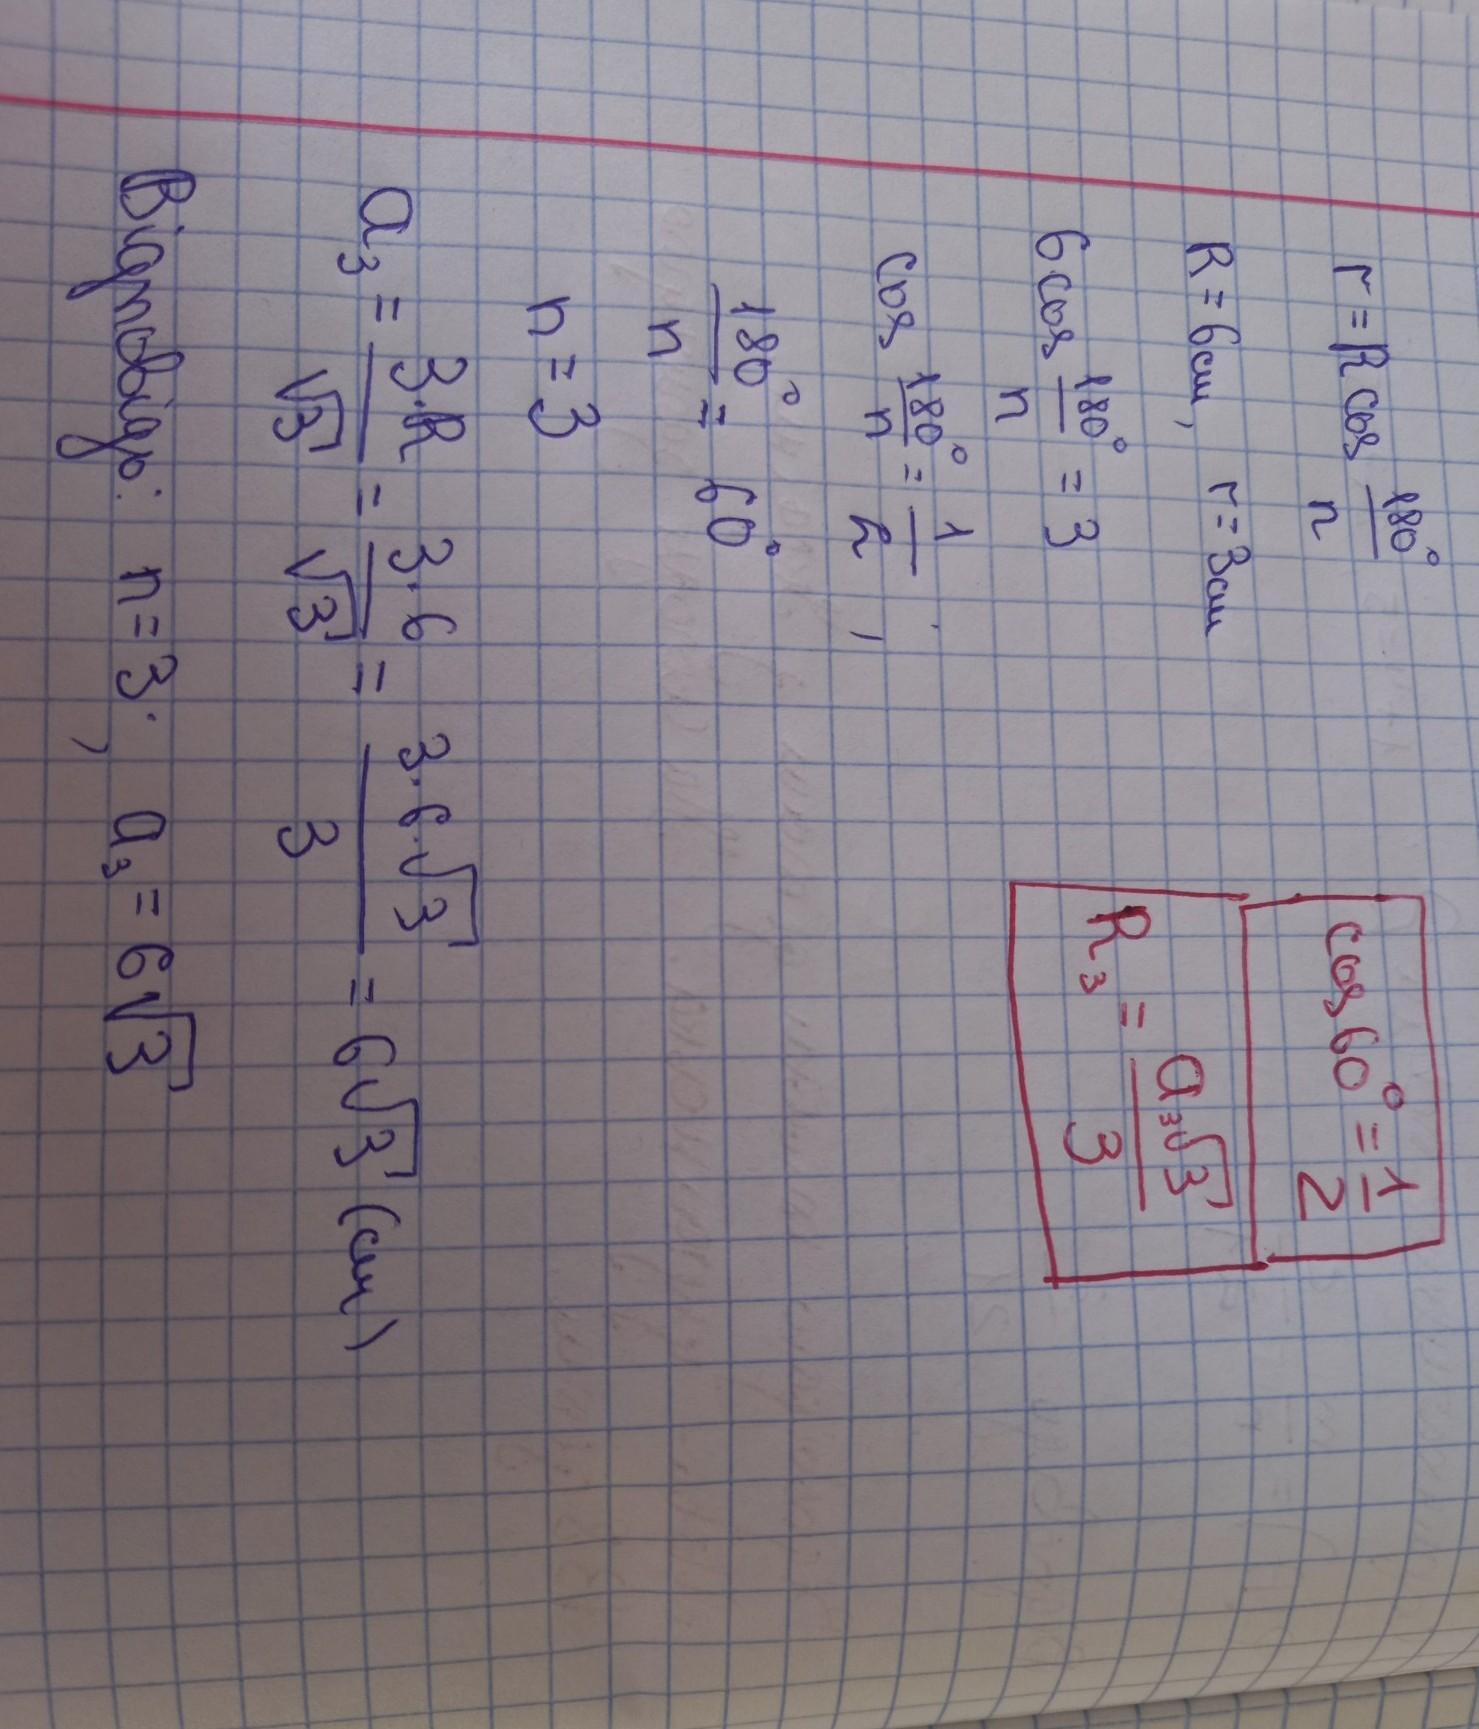 r = R cos 180°/n
R = 6см, r = 3см
6 cos 180°/n = 3
cos 180°/n = 1/2;
180°/n = 60°
n = 3
a₃ = 3·R/√3 = 3·6/√3 = 3·6·√3/3 = 6√3 (см)
Відповідь: n = 3; a₃ = 6√3
cos 60° = 1/2
R₃ = a₃√3/3